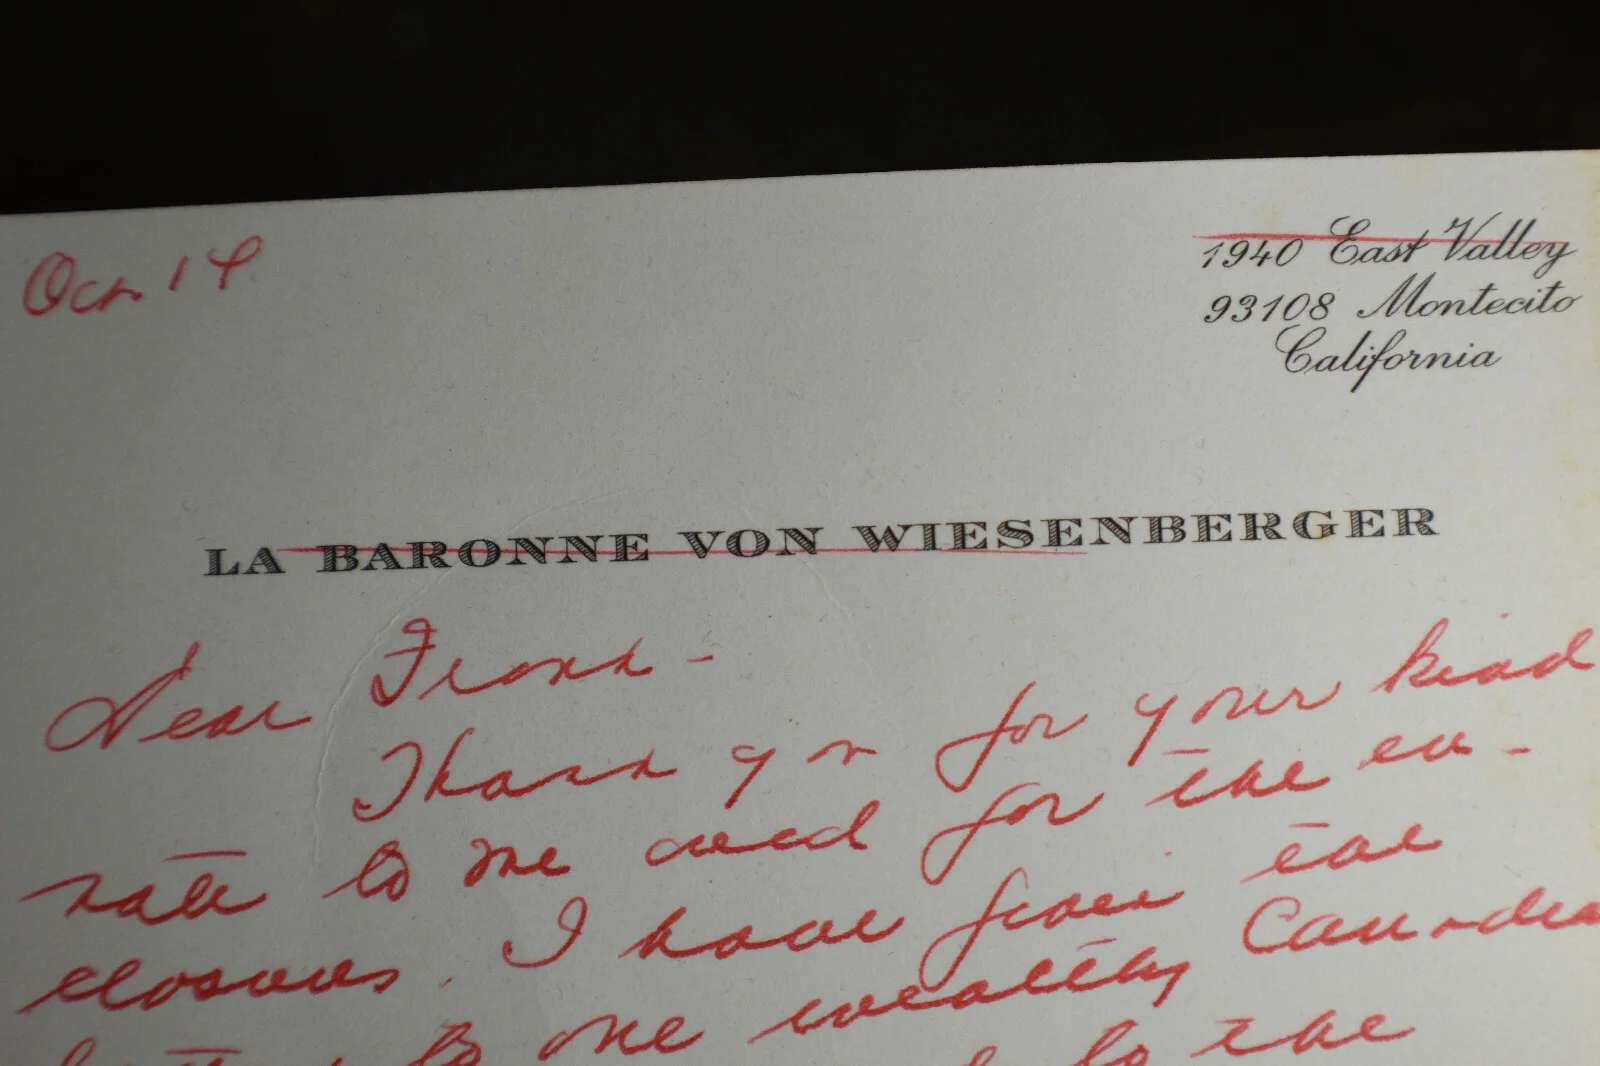 Oct 14
1940 East Valley
93108 Montecito
California
LA BARONNE VON WIESENBERGER
Dear Frank -
Thank you for your kind
note to me and for the en-
closures. I have given the
to one wealthy Canadia
to the